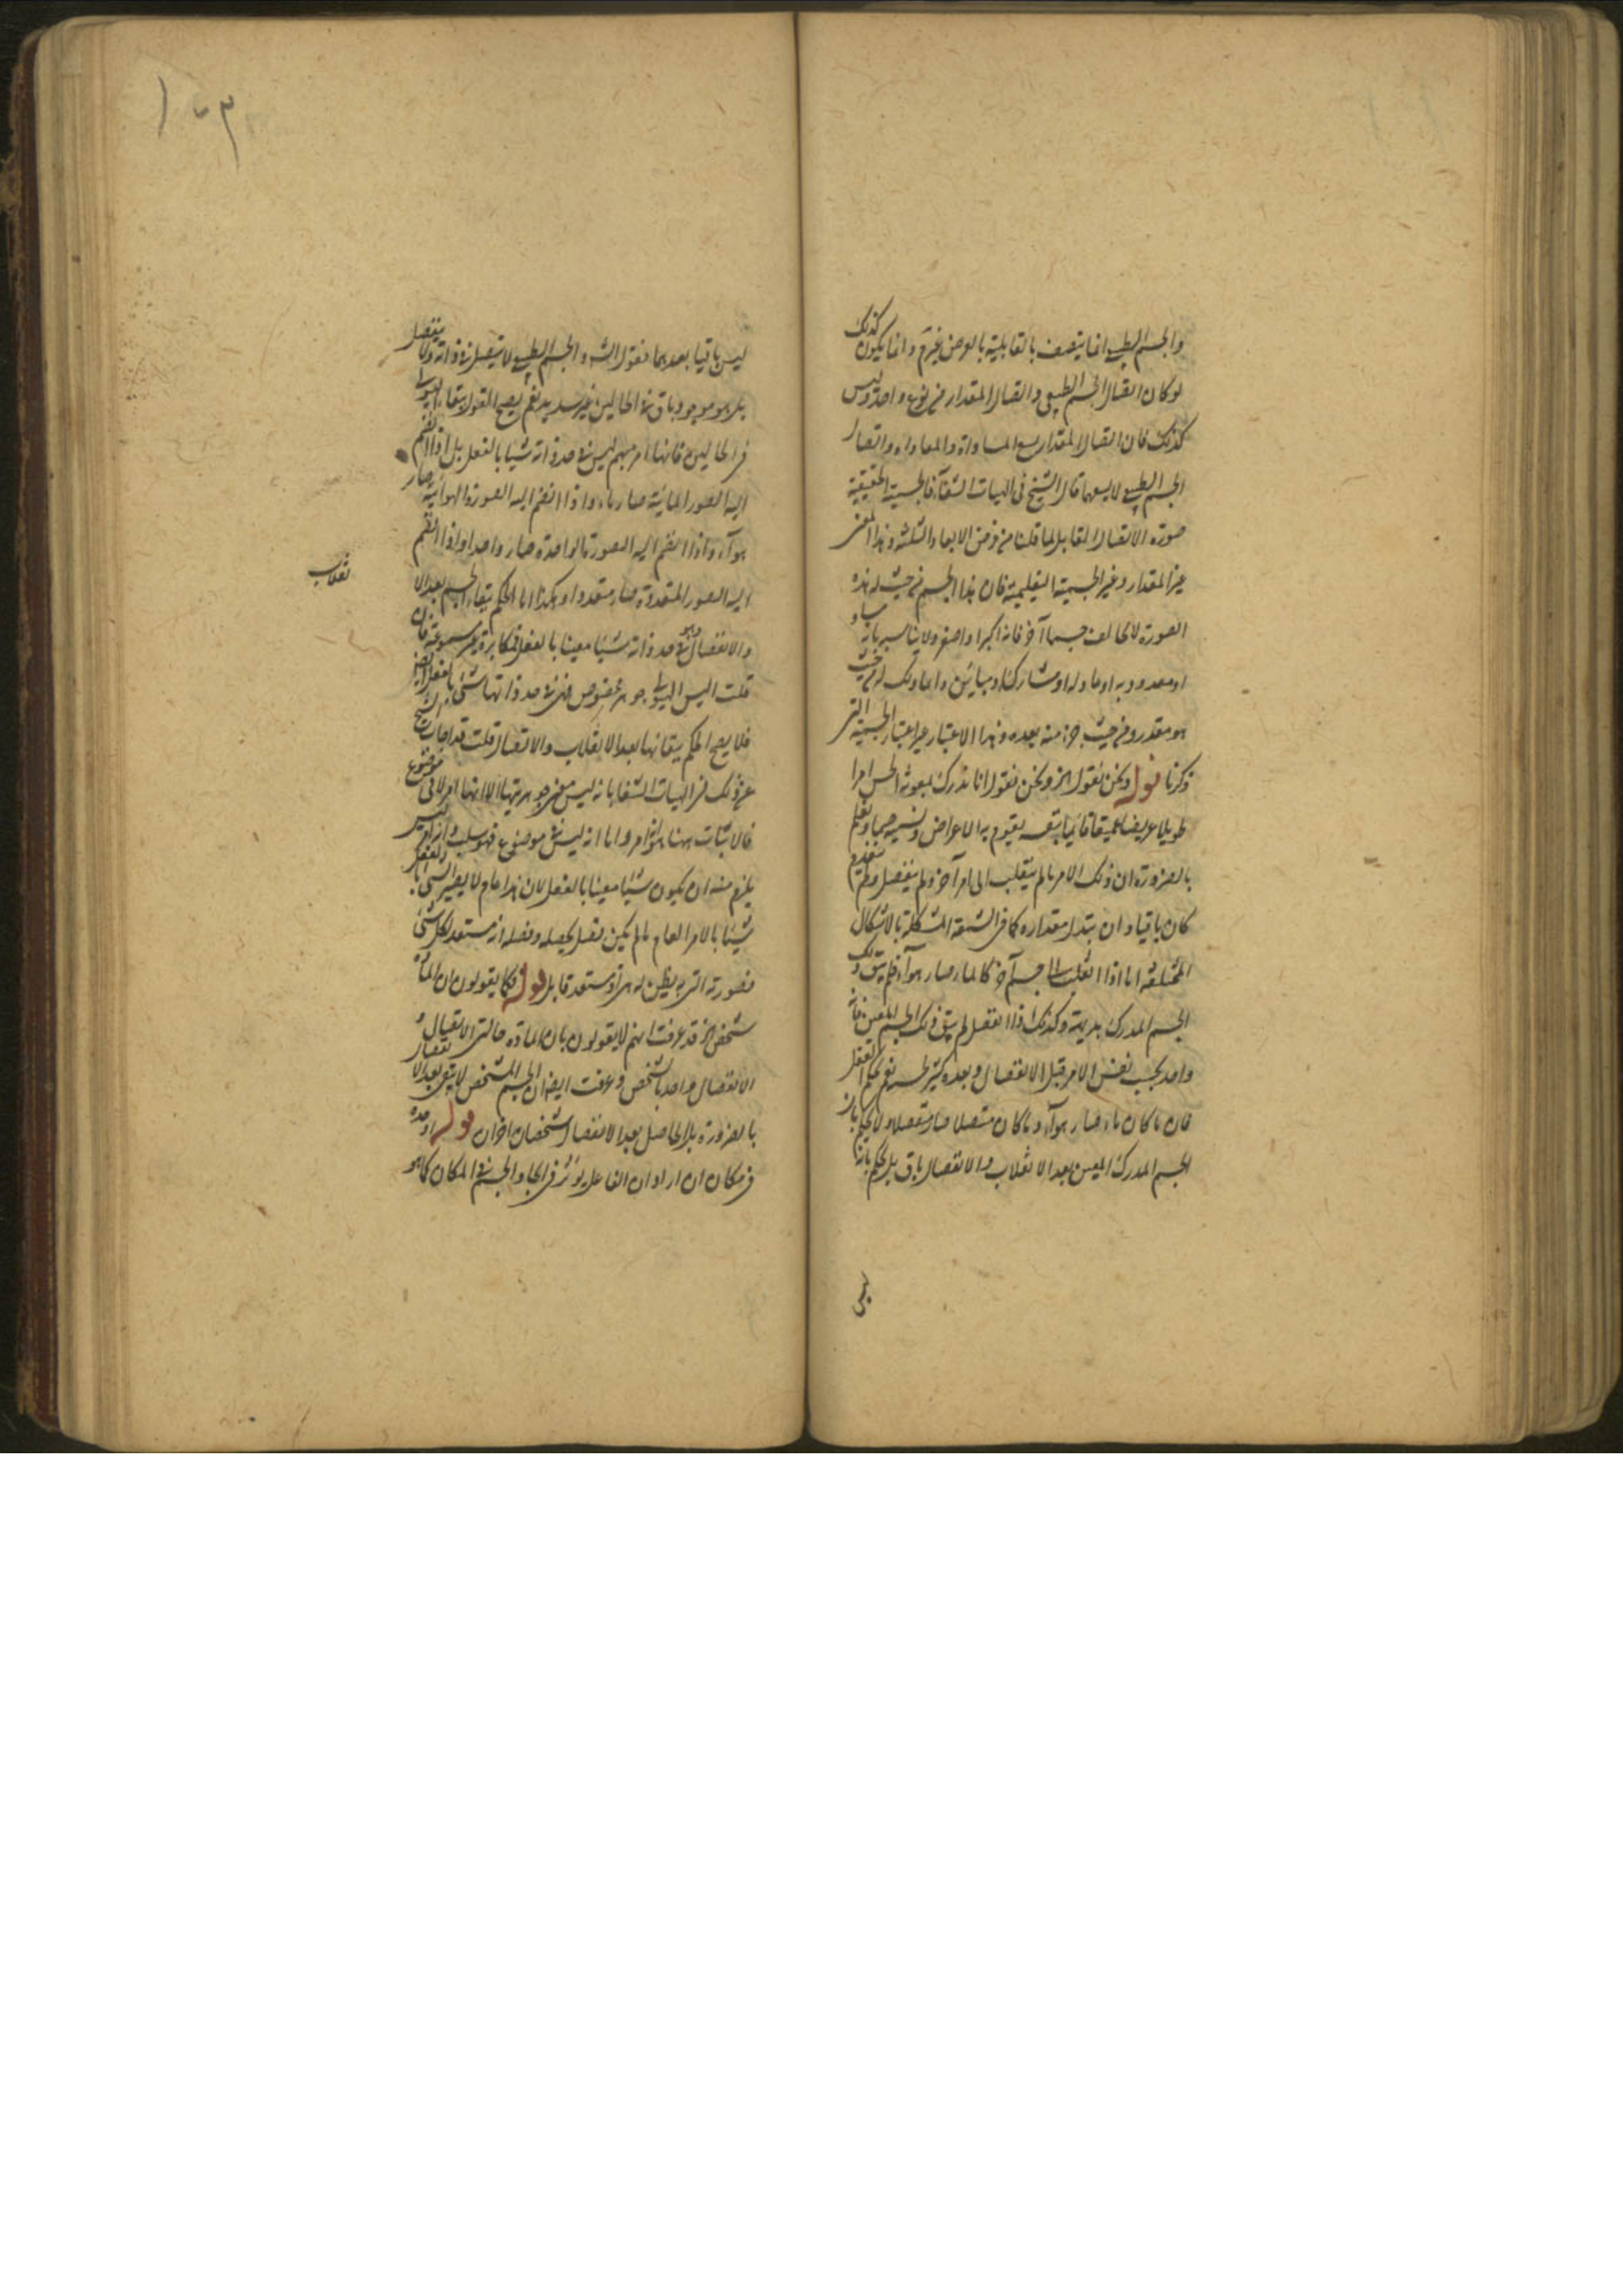 والجسم الطبيعي انما يتصف بالقابلية بالعرض غير م وانما يكون كذلك
لو كان اتصال الجسم الطبيعي واتصال المقدار من نوع واحد وليس
كذلك فان اتصال المقدار يسع المساواة والمعاداة واتصال
الجسم الطبيعي لا يسعها قال الشيخ في الهيات الشفآء فالجسمية الحقيقية
صورة الاتصال القابل لما قلنا من فرض الابعاد الثلثة وهذا المعنى
غير المقدار وغير الجسمية التعليمية فان هذا الجسم من حيث له هذه
الصورة لا يخالف جسما آخر فانه اكبر او اصغر ولا يناسبه بانه مساو
او معدود به او عاد له او مشارك او مباين وانما ذلك له من حيث
هو مقدر ومن حيث جزء منه يعده وهذا الاعتبار غير اعتبار الجسمية التي
ذكرنا قوله ونحن نقول الخ ونحن نقول انا ندرك بمعونة الحس امرا
طويلا عريضا عميقا قائما بنفسه يقوم به الاعراض ونسميه جسما ونعلم
بالضرورة ان ذلك الامر ما لم ينقلب الى امر آخر ولم ينفصل ولم ينعدم
كان باقيا وان تبدل مقداره كما في الشمعة المشكلة بالاشكال
المختلفة اما اذا انقلب الى جسم آخر كالماء صار هوآء فلم يبق ذلك
الجسم المدرك بديهة وكذلك اذا انفصل لم يبق ذلك الجسم المعين فانه
واحد بحسب نفس الامر قبل الانفصال وبعده كثير لجسم نعم يحكم العقل
فان ما كان ماء صار هوآء وما كان متصلا صار منفصلا ولا يحكم بان
الجسم المدرك المعين بعد الانقلاب والانفصال باق بل يحكم بانه
ليس باقيا بعدهما فقول الشه والجسم الطبيعي لا يتصل في ذاته ولا ينفصل
بل هو موجود باق في الحالين غير سديد نعم يصح القول ببقاء الهيولى
في الحالين فانها امر مبهم ليس في حد ذاته شيئا بالفعل بل اذا انضم
اليه الصور المائية صار ماء واذا انضم اليه الصورة الهوائية صار
هوآء واذا انضم اليه الصورة الواحدة صار واحدا واذا انضم
اليه الصور المتعددة صار متعددا وهكذا اما الحكم ببقاء الجسم بعد الا
نقلاب
والانفصال وهو في حد ذاته شيئا معينا بالفعل فمكابرة غير مسموعة فان
قلت اليس الهيولى جوهر مخصوص فهي في حد ذاتها شئ بالفعل ايضا
فلا يصح الحكم ببقائها بعد الانقلاب والانفصال قلت قد اجاب الشيخ
عن ذلك في الهيات الشفا بانه ليس معنى جوهريتها الا انها امر لا في موضوع
فالاثبات ههنا هو انه امر واما انه ليس في موضوع فهو سلب وانه امر ليس
يلزم منه ان يكون شيئا معينا بالفعل لان هذا عام لا يصير الشئ بالفعل
شيئا بالامر العام ما لم يكن فصل يحصله وفصله انه مستعد لكل شئ
فصورته التي يظن له هي انه مستعد قابل قوله فكما يقولون ان المادة
شخص الخ قد عرفت انهم لا يقولون بان المادة حالتي الاتصال و
الانفصال واحد بالشخص وعرفت ايضا ان الجسم المشخص لا يبقى بعد الانفصال
بالضرورة بل الحاصل بعد الانفصال شخصان اخران قوله او حده
في مكان ان اراد ان الفاعل يؤثر في ايجاد الجسم في المكان كما هو
بل
١٠٣